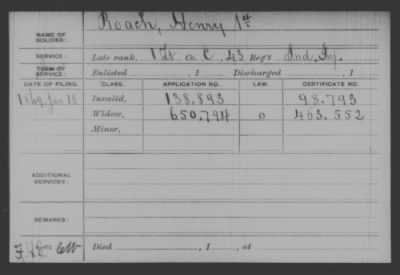 NAME OF SOLDIER: Roach, Henry 1st
SERVICE: Late rank, 1 Lt Co. C, 43 Reg't Ind. Inf.
TERM OF SERVICE: Enlisted , 1 Discharged , 1
DATE OF FILING. CLASS. APPLICATION NO. LAW. CERTIFICATE NO.
1869, Jan 18 Invalid, 138.893 98.793
Widow, 650.794 o 463.552
Minor,
ADDITIONAL SERVICES:
REMARKS:
Died , 1 , at